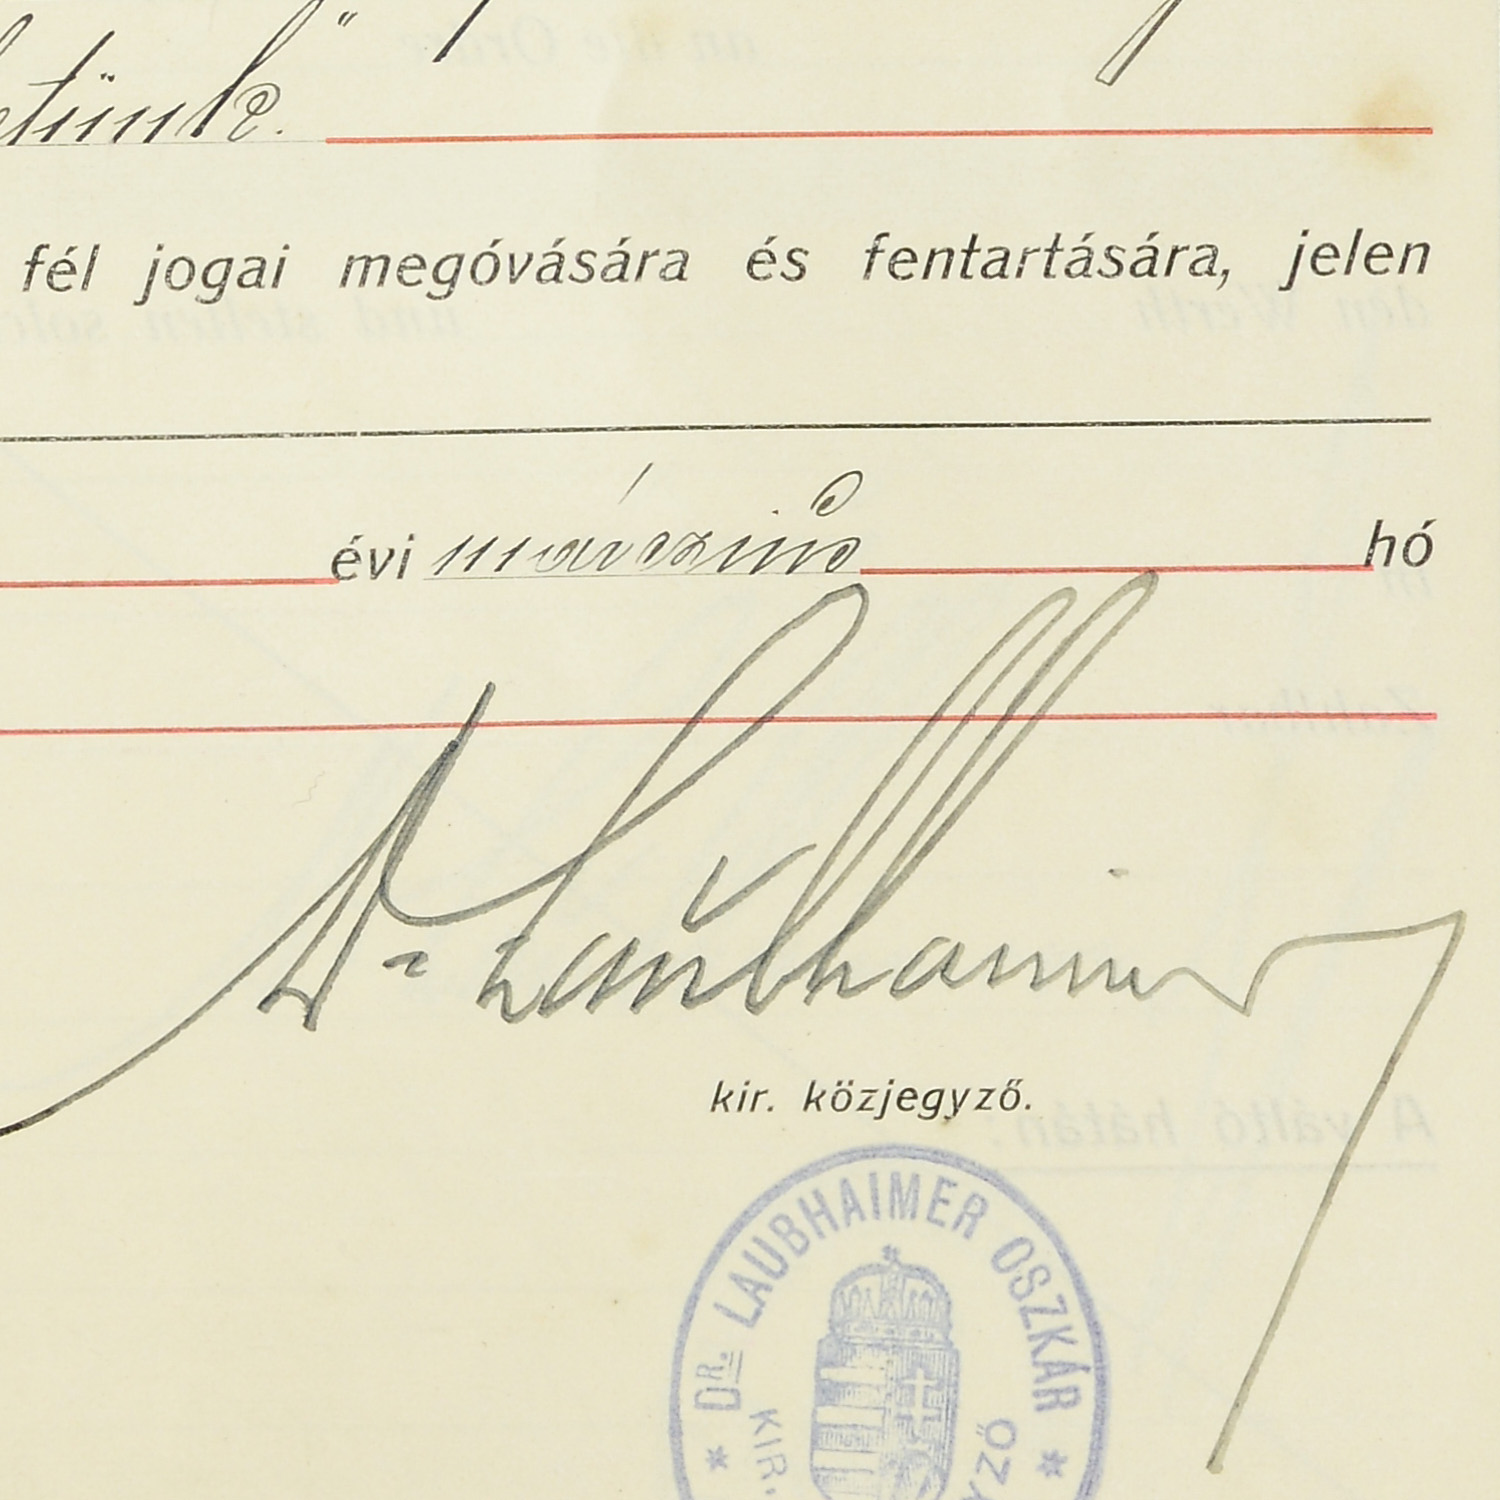 fél jogai megóvására és fentartására, jelen
évi márczius hó
Dr Laubhaimer
kir. közjegyző.
* DR. LAUBHAIMER OSZKÁR *
KIR.